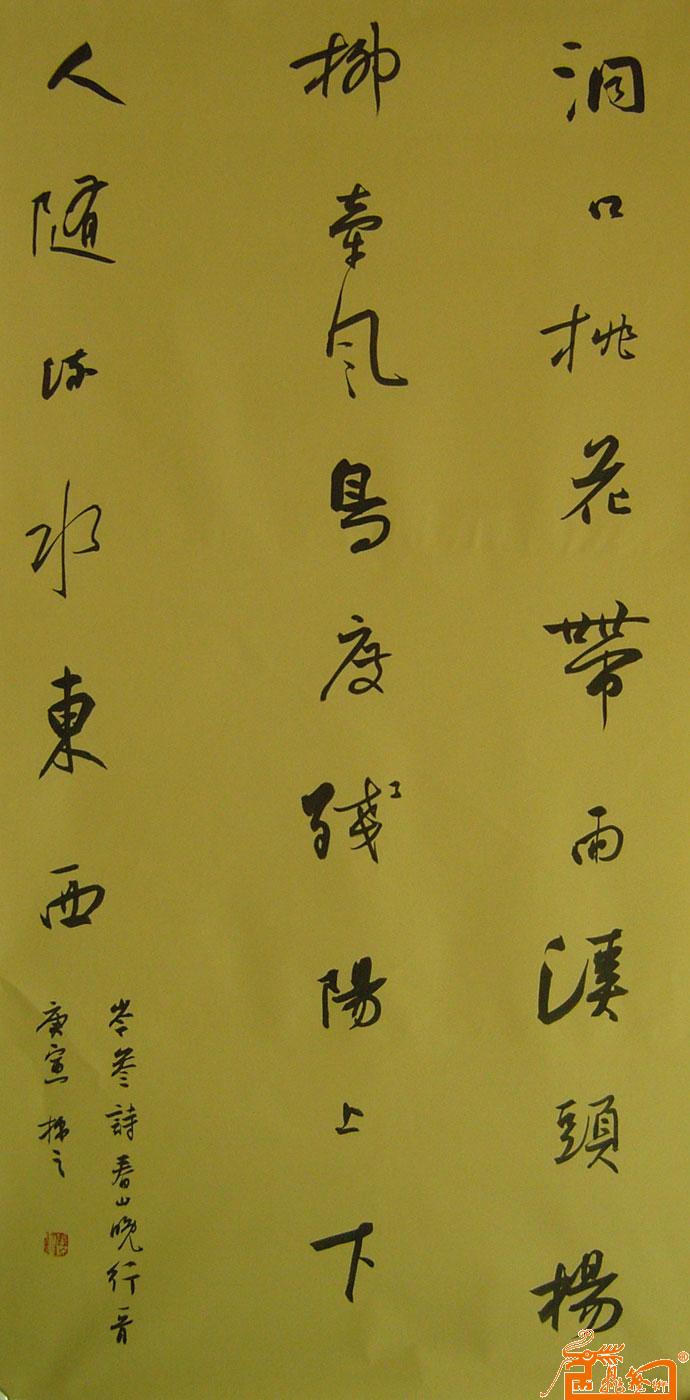 洞口桃花帶雨溪頭楊
柳牽風鳥度殘陽上下
人隨流水東西
岑參詩春山晚行音
庚寅